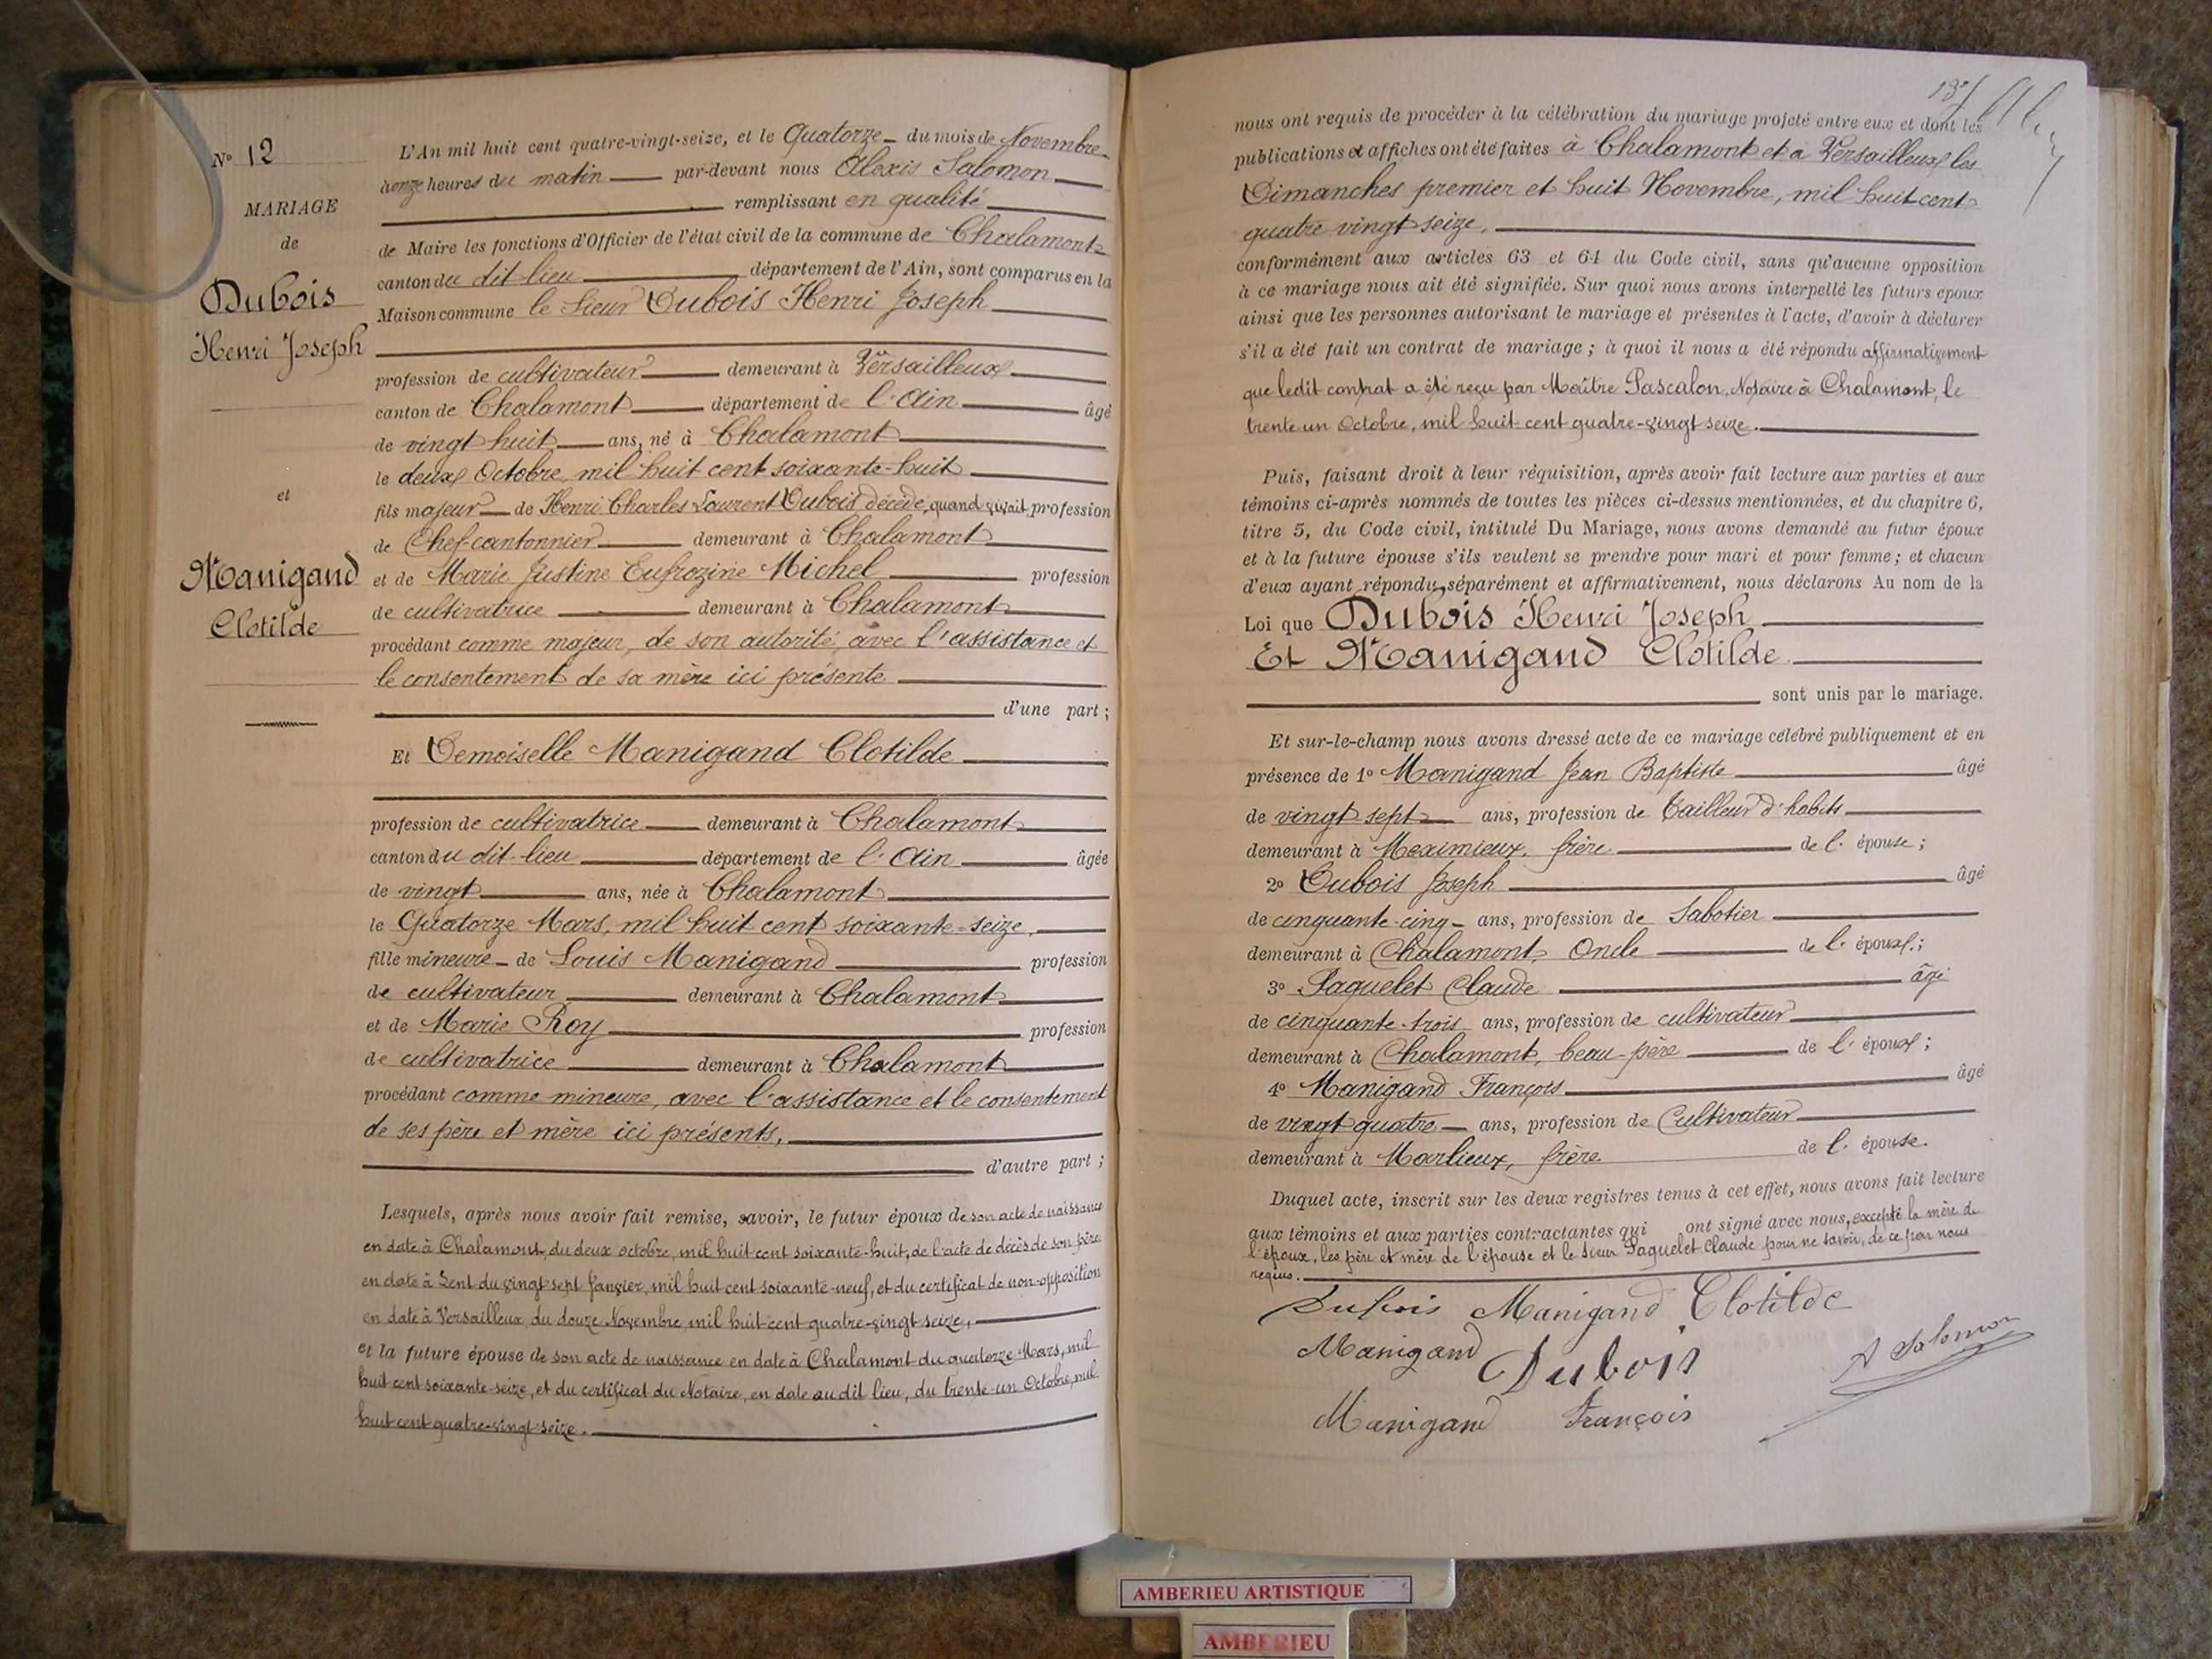 N° 12
MARIAGE
de
Dubois
Henri Joseph
et
Manigand
Clotilde
L'An mil huit cent quatre-vingt-seize, et le Quatorze du mois de Novembre
à onze heures du matin par-devant nous Alexis Salomon
remplissant en qualité
de Maire les fonctions d'Officier de l'état civil de la commune de Chalamont
canton du dit lieu département de l'Ain, sont comparus en la
Maison commune le Sieur Dubois Henri Joseph
profession de cultivateur demeurant à Versailleux
canton de Chalamont département de l'Ain âgé
de vingt huit ans, né à Chalamont
le deux Octobre, mil huit cent soixante-huit
fils majeur de Henri Charles Laurent Dubois décédé, quand vivait, profession
de Chef-cantonnier demeurant à Chalamont
et de Marie Justine Eufrozine Michel profession
de cultivatrice demeurant à Chalamont
procédant comme majeur, de son autorité, avec l'assistance et
le consentement de sa mère ici présente
d'une part ;
Et Demoiselle Manigand Clotilde
profession de cultivatrice demeurant à Chalamont
canton du dit-lieu département de l'Ain âgée
de vingt ans, née à Chalamont
le Quatorze Mars, mil huit cent soixante-seize,
fille mineure de Louis Manigand profession
de cultivateur demeurant à Chalamont
et de Marie Roy profession
de cultivatrice demeurant à Chalamont
procédant comme mineure, avec l'assistance et le consentement
de ses père et mère ici présents,
d'autre part ;
Lesquels, après nous avoir fait remise, savoir, le futur époux de son acte de naissance
en date à Chalamont, du deux octobre, mil huit cent soixante-huit, de l'acte de décès de son père
en date à Lent du vingt sept Janvier, mil huit cent soixante-neuf, et du certificat de non-opposition
en date à Versailleux, du douze Novembre, mil huit cent quatre-vingt seize,
et la future épouse de son acte de naissance en date à Chalamont du quatorze Mars, mil
huit cent soixante-seize, et du certificat du Notaire, en date au dit lieu, du trente-un Octobre, mil
huit cent quatre-vingt-seize.
137
nous ont requis de procéder à la célébration du mariage projeté entre eux et dont les
publications et affiches ont été faites à Chalamont et à Versailleux les
Dimanches premier et huit Novembre, mil huit cent
quatre vingt seize,
conformément aux articles 63 et 64 du Code civil, sans qu'aucune opposition
à ce mariage nous ait été signifiée. Sur quoi nous avons interpellé les futurs époux
ainsi que les personnes autorisant le mariage et présentes à l'acte, d'avoir à déclarer
s'il a été fait un contrat de mariage ; à quoi il nous a été répondu affirmativement
que ledit contrat a été reçu par Maître Pascalon, Notaire à Chalamont, le
trente un Octobre, mil huit cent quatre-vingt seize.
Puis, faisant droit à leur réquisition, après avoir fait lecture aux parties et aux
témoins ci-après nommés de toutes les pièces ci-dessus mentionnées, et du chapitre 6,
titre 5, du Code civil, intitulé Du Mariage, nous avons demandé au futur époux
et à la future épouse s'ils veulent se prendre pour mari et pour femme ; et chacun
d'eux ayant répondu, séparément et affirmativement, nous déclarons Au nom de la
Loi que Dubois Henri Joseph
Et Manigand Clotilde
sont unis par le mariage.
Et sur-le-champ nous avons dressé acte de ce mariage célébré publiquement et en
présence de 1° Manigand Jean Baptiste âgé
de vingt sept ans, profession de Tailleur d'habits
demeurant à Meximieux, frère de l'épouse ;
2° Dubois Joseph âgé
de cinquante-cinq ans, profession de Sabotier
demeurant à Chalamont, Oncle de l'époux ;
3° Paquelet Claude âgé
de cinquante-trois ans, profession de cultivateur
demeurant à Chalamont, beau-père de l'époux ;
4° Manigand François âgé
de vingt quatre ans, profession de Cultivateur
demeurant à Marlieux, frère de l'épouse.
Duquel acte, inscrit sur les deux registres tenus à cet effet, nous avons fait lecture
aux témoins et aux parties contractantes qui ont signé avec nous, excepté la mère de
l'époux, les père et mère de l'épouse et le sieur Paquelet Claude pour ne savoir, de ce par nous
requis.
Dubois Manigand Clotilde
Manigand Dubois A Salomon
Manigand François
AMBERIEU ARTISTIQUE
AMBERIEU